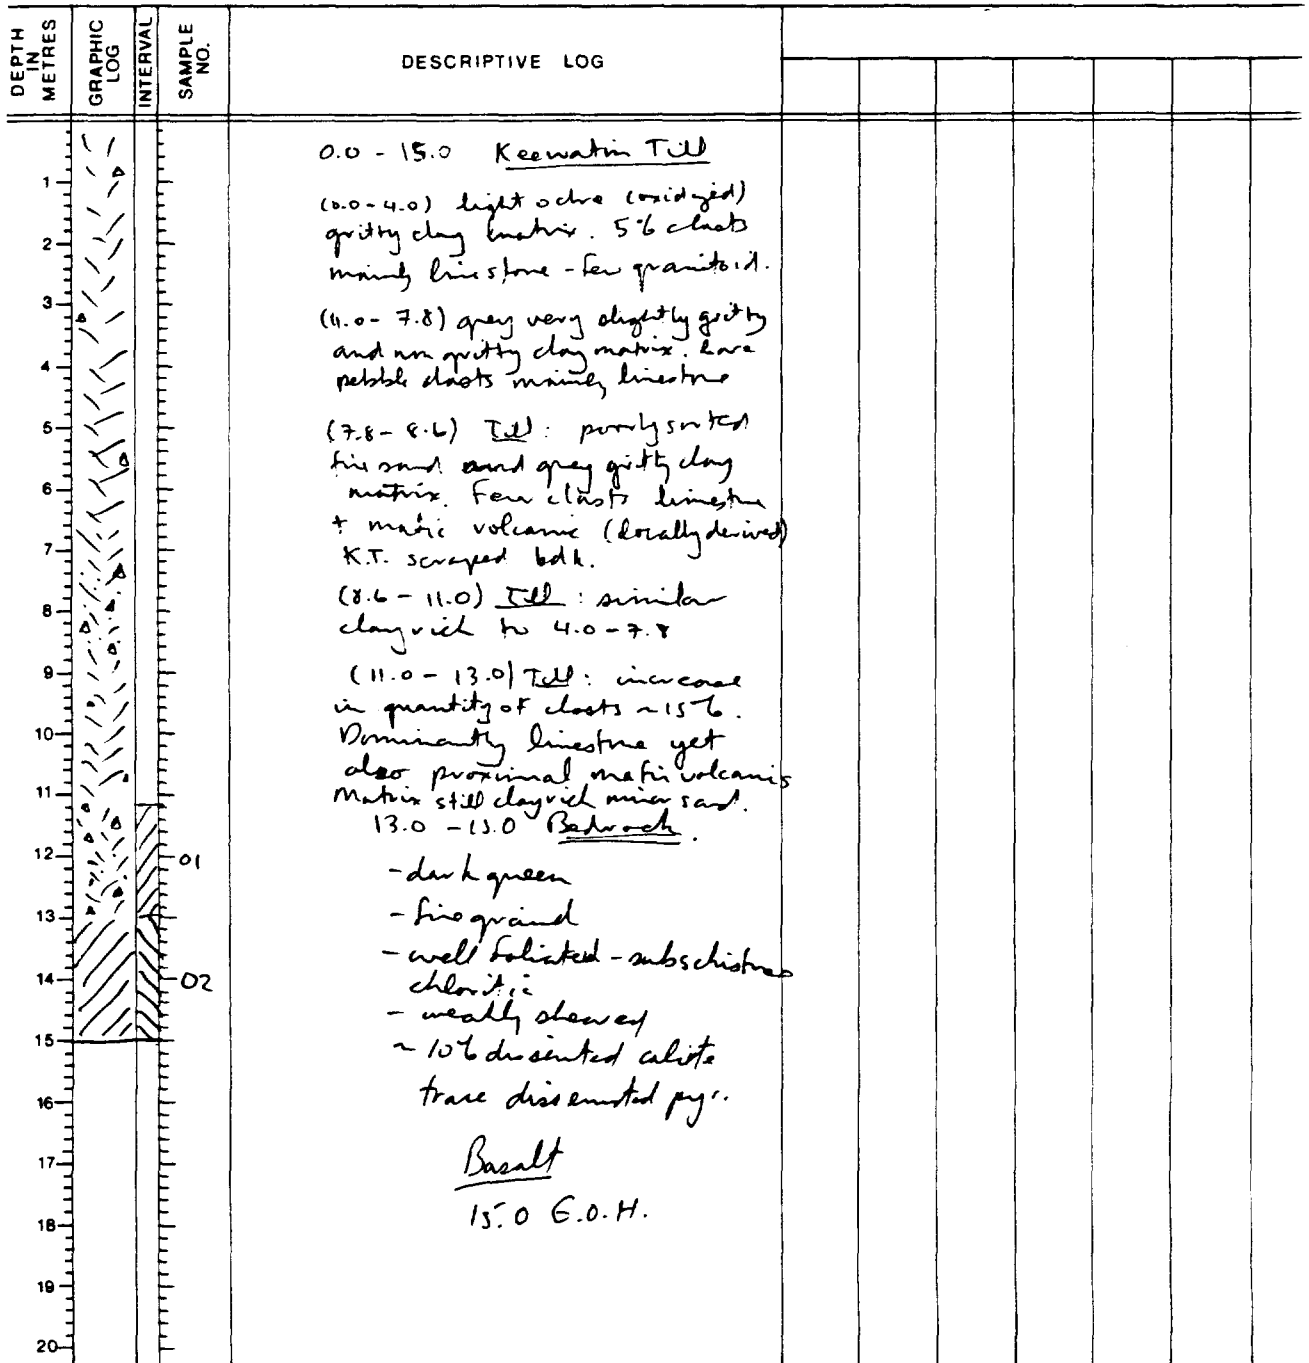 DEPTH IN METRES
GRAPHIC LOG
INTERVAL
SAMPLE NO.
DESCRIPTIVE LOG
0.0 - 15.0 Keewatin Till
(0.0-4.0) light ochre (oxidized)
gritty clay matrix. 5% clasts
mainly limestone - few granitoid.
(4.0 - 7.8) grey very slightly gritty
and non gritty clay matrix. Rare
pebble clasts mainly limestone
(7.8 - 8.6) Till: poorly sorted
fine sand and grey gritty clay
matrix. Few clasts limestone
+ mafic volcanic (locally derived)
K.T. scraped bdk.
(8.6 - 11.0) Till: similar
clayrich to 4.0 - 7.8
(11.0 - 13.0) Till: increase
in quantity of clasts ~15%.
Dominantly limestone yet
also proximal mafic volcanics
Matrix still clayrich minor sand.
13.0 - 15.0 Bedrock.
- dark green
- fine graind
- well foliated - subschistose
chloritic
- weakly sheared
~ 10% calcite
trace pyr.
Basalt
15.0 E.O.H.
1
2
3
4
5
6
7
8
9
10
11
12
13
14
15
16
17
18
19
20
01
02